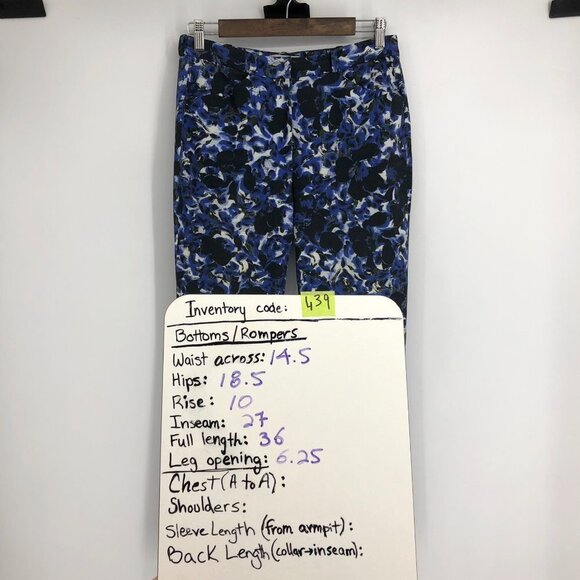 Inventory code: 439
Bottoms/Rompers
Waist across: 14.5
Hips: 18.5
Rise: 10
Inseam: 27
Full length: 36
Leg opening: 6.25
Chest (A to A):
Shoulders:
Sleeve Length (from armpit):
Back Length (collar→inseam):